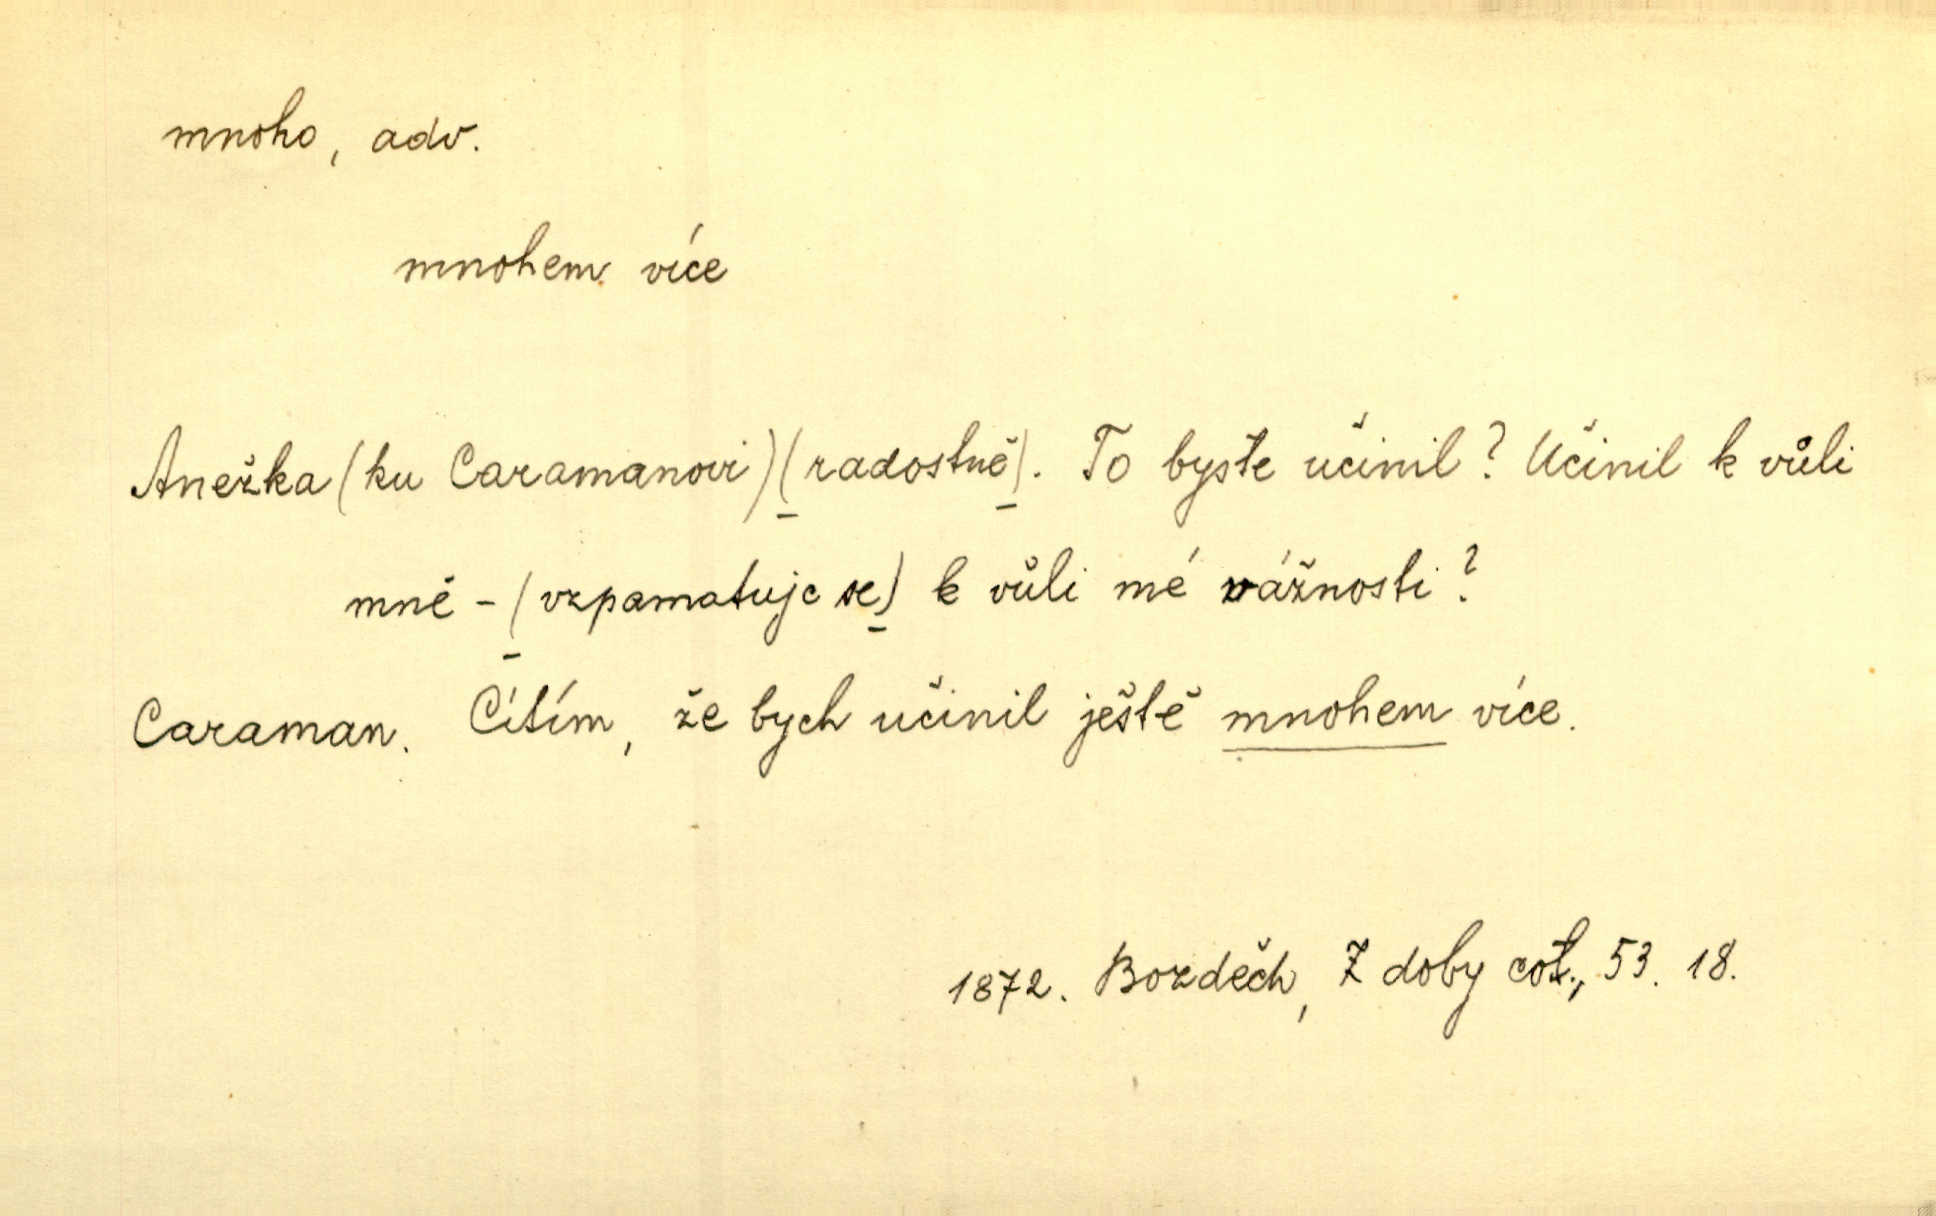 mnoho, adv.
mnohem více
Anežka (ku Caramanovi) (radostně). To byste učinil? Učinil k vůli
mně - (vzpamatujc se) k vůli mé vážnosti?
Caraman. Cítím, že bych učinil ještě mnohem více.
1872. Bozděch, Z doby cot., 53. 18.